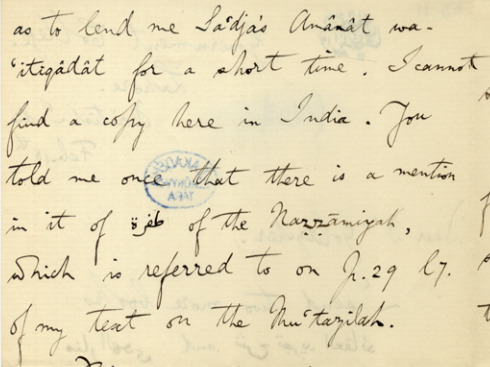 as to lend me Sa'dja's Amânât wa-
'itiqâdât for a short time. I cannot
find a copy here in India. You
told me once that there is a mention
in it of طفرة of the Nazzâmiyah,
which is referred to on p. 29 l 7.
of my text on the Mu'tazilah.